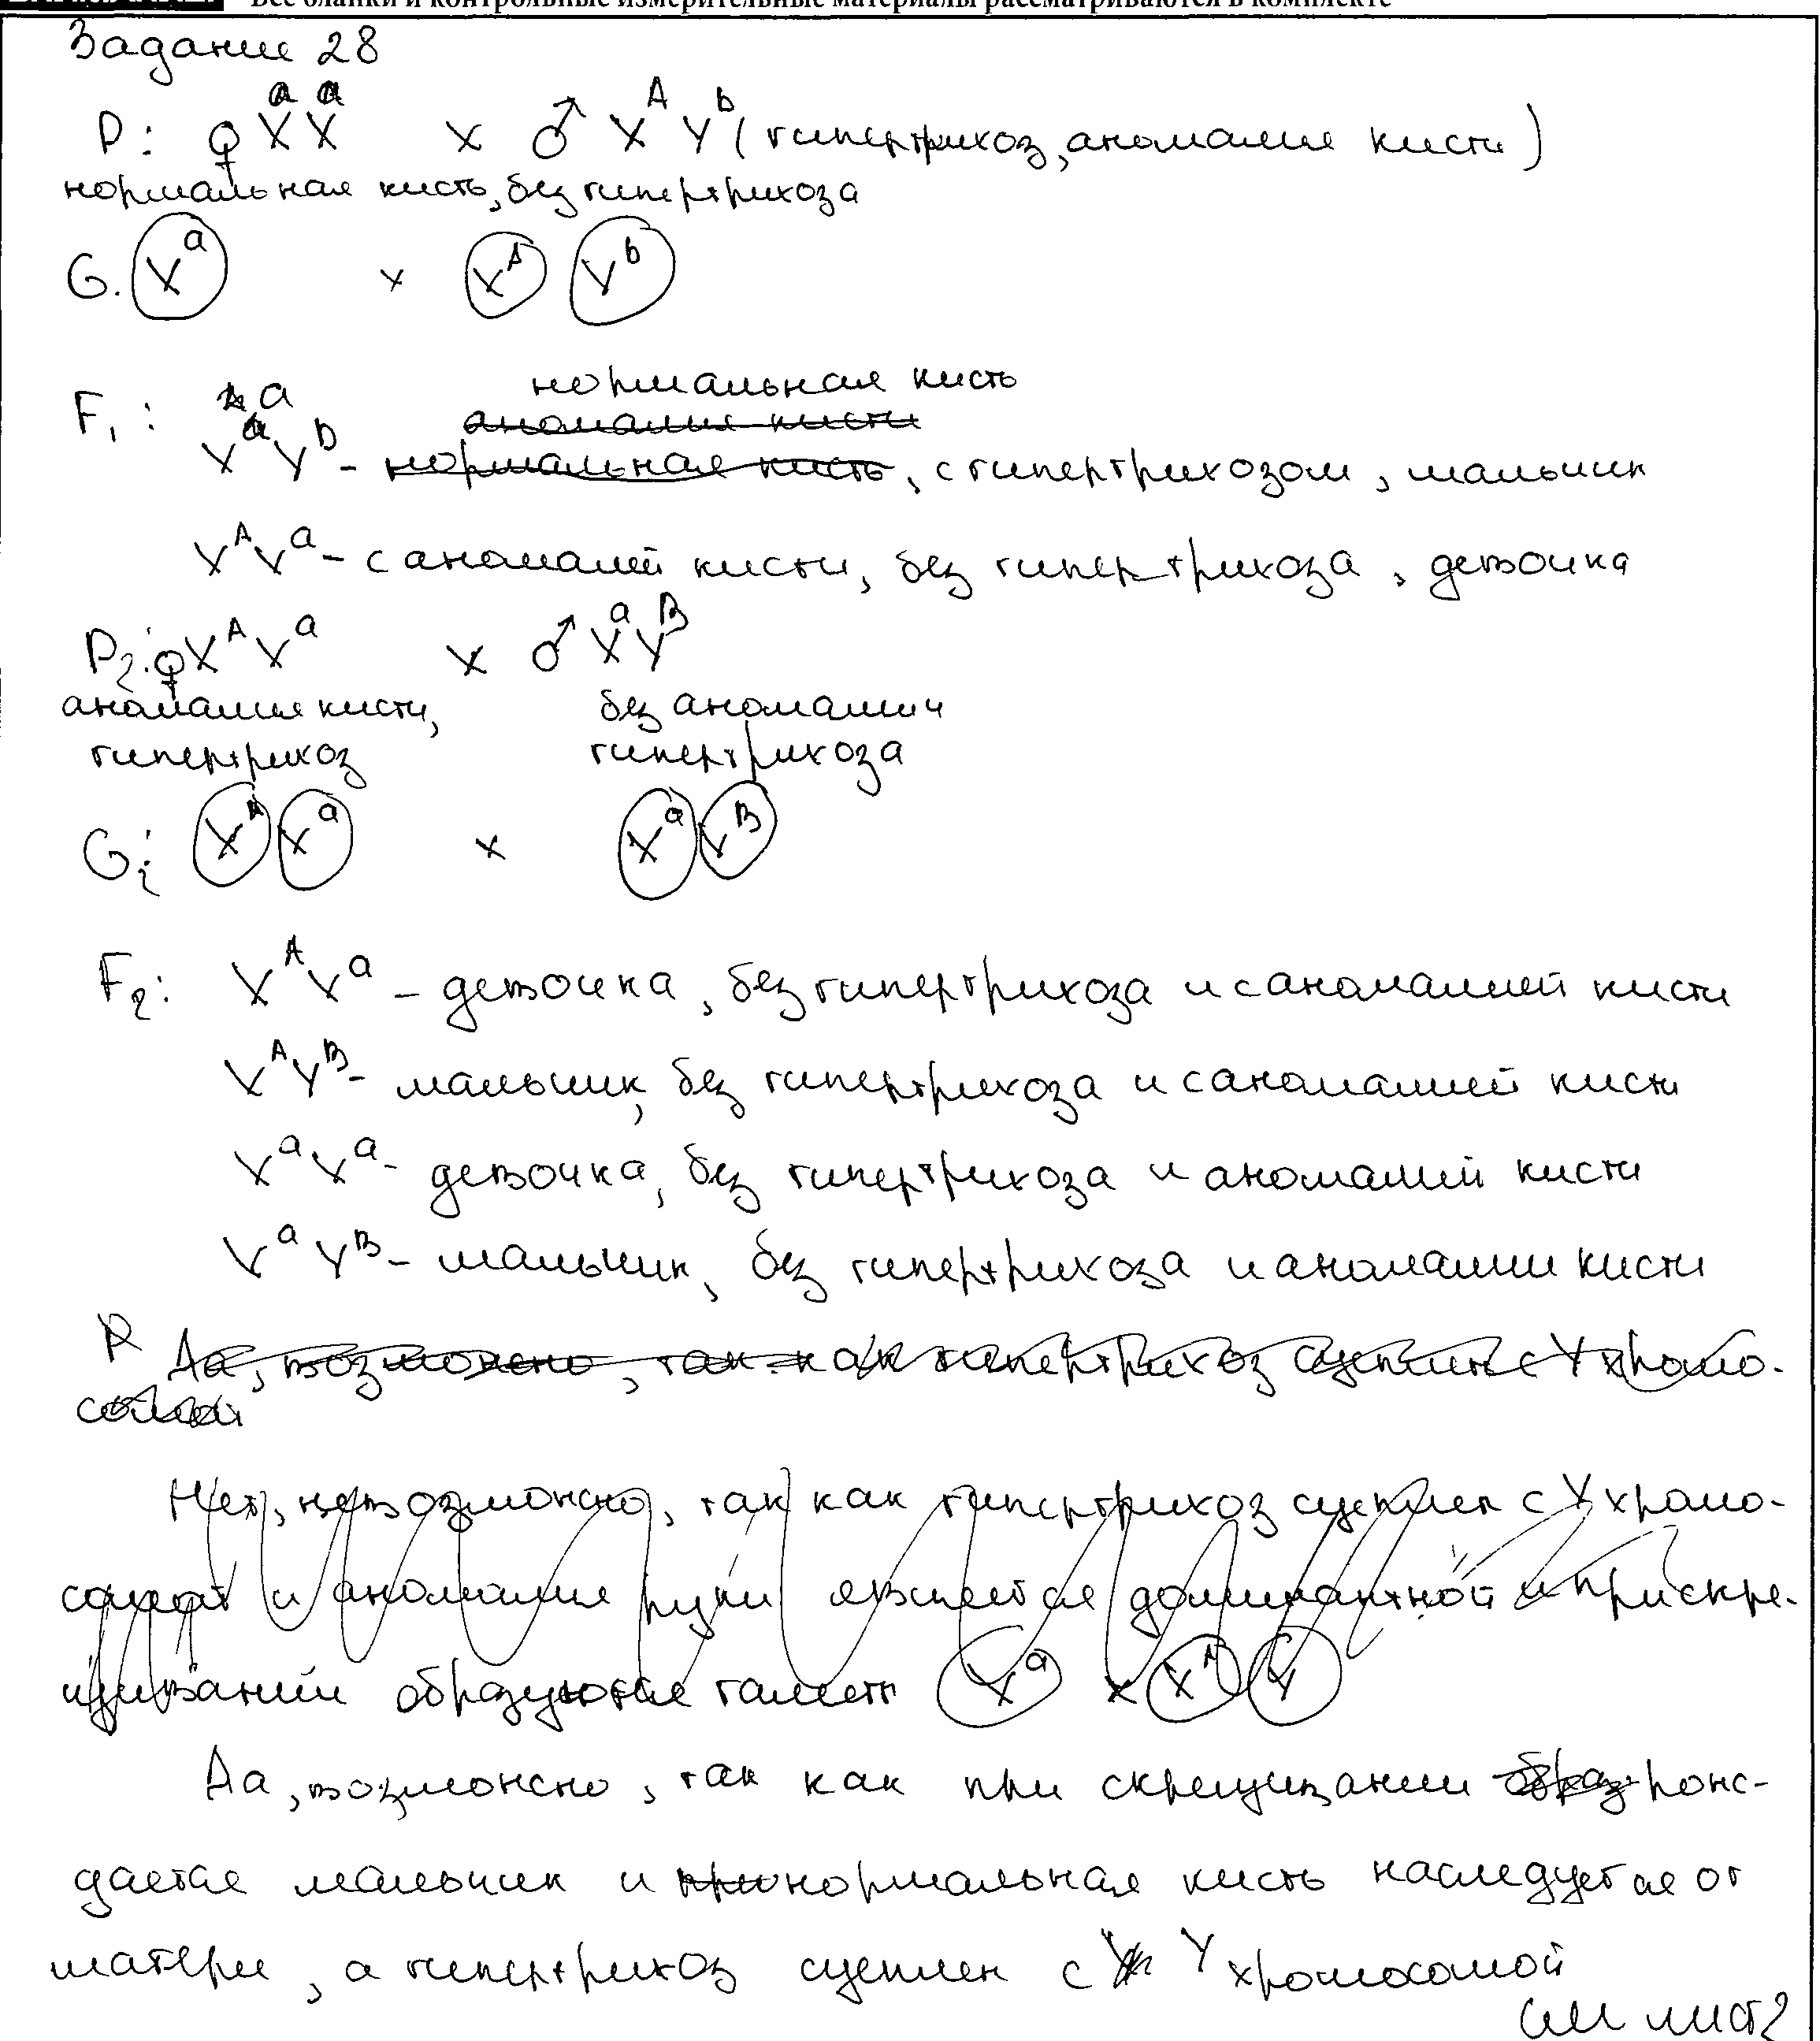 Все бланки и контрольные измерительные материалы рассматриваются в комплекте
Задание 28
a a
P: ♀ X X x ♂ X^A Y^b (гипертрихоз, аномалия кисти)
нормальная кисть, без гипертрихоза
G. X^a x X^A Y^b
нормальная кисть
F₁: a аномалия кисти
X^a Y^b - нормальная кисть, с гипертрихозом, мальчик
X^A X^a - с аномалией кисти, без гипертрихоза, девочка
P₂: ♀ X^A X^a x ♂ X^a Y^B
аномалия кисти, без аномалии и
гипертрихоз гипертрихоза
G: X^A X^a x X^a Y^B
F₂: X^A X^a - девочка, без гипертрихоза и с аномалией кисти
X^A Y^B - мальчик, без гипертрихоза и с аномалией кисти
X^a X^a - девочка, без гипертрихоза и аномалий кисти
X^a Y^B - мальчик, без гипертрихоза и аномалии кисти
Да, возможно, так как гипертрихоз сцеплен с Y хромо-
сомой
Нет, невозможно, так как гипертрихоз сцеплен с Y хромо-
сомой и аномалия руки является доминантной и при скре-
щивании образуются гаметы X^a x X^A Y
Да, возможно, так как при скрещивании образ рож-
дается мальчик и при нормальная кисть наследуется от
матери, а гипертрихоз сцеплен с Y хромосомой
см лист 2